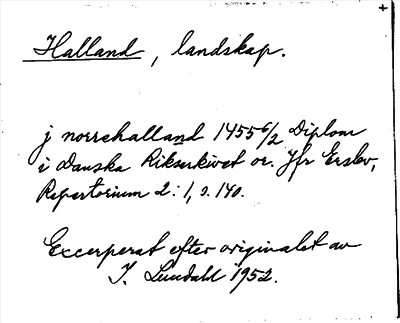 Halland, landskap.
j norrehalland 1455 6/2 Diplom
i Danska Riksarkivet or. Jfr Erslev,
Repertorium 2:1, s. 140.
Excerperat efter originalet av
I. Lundahl 1952.